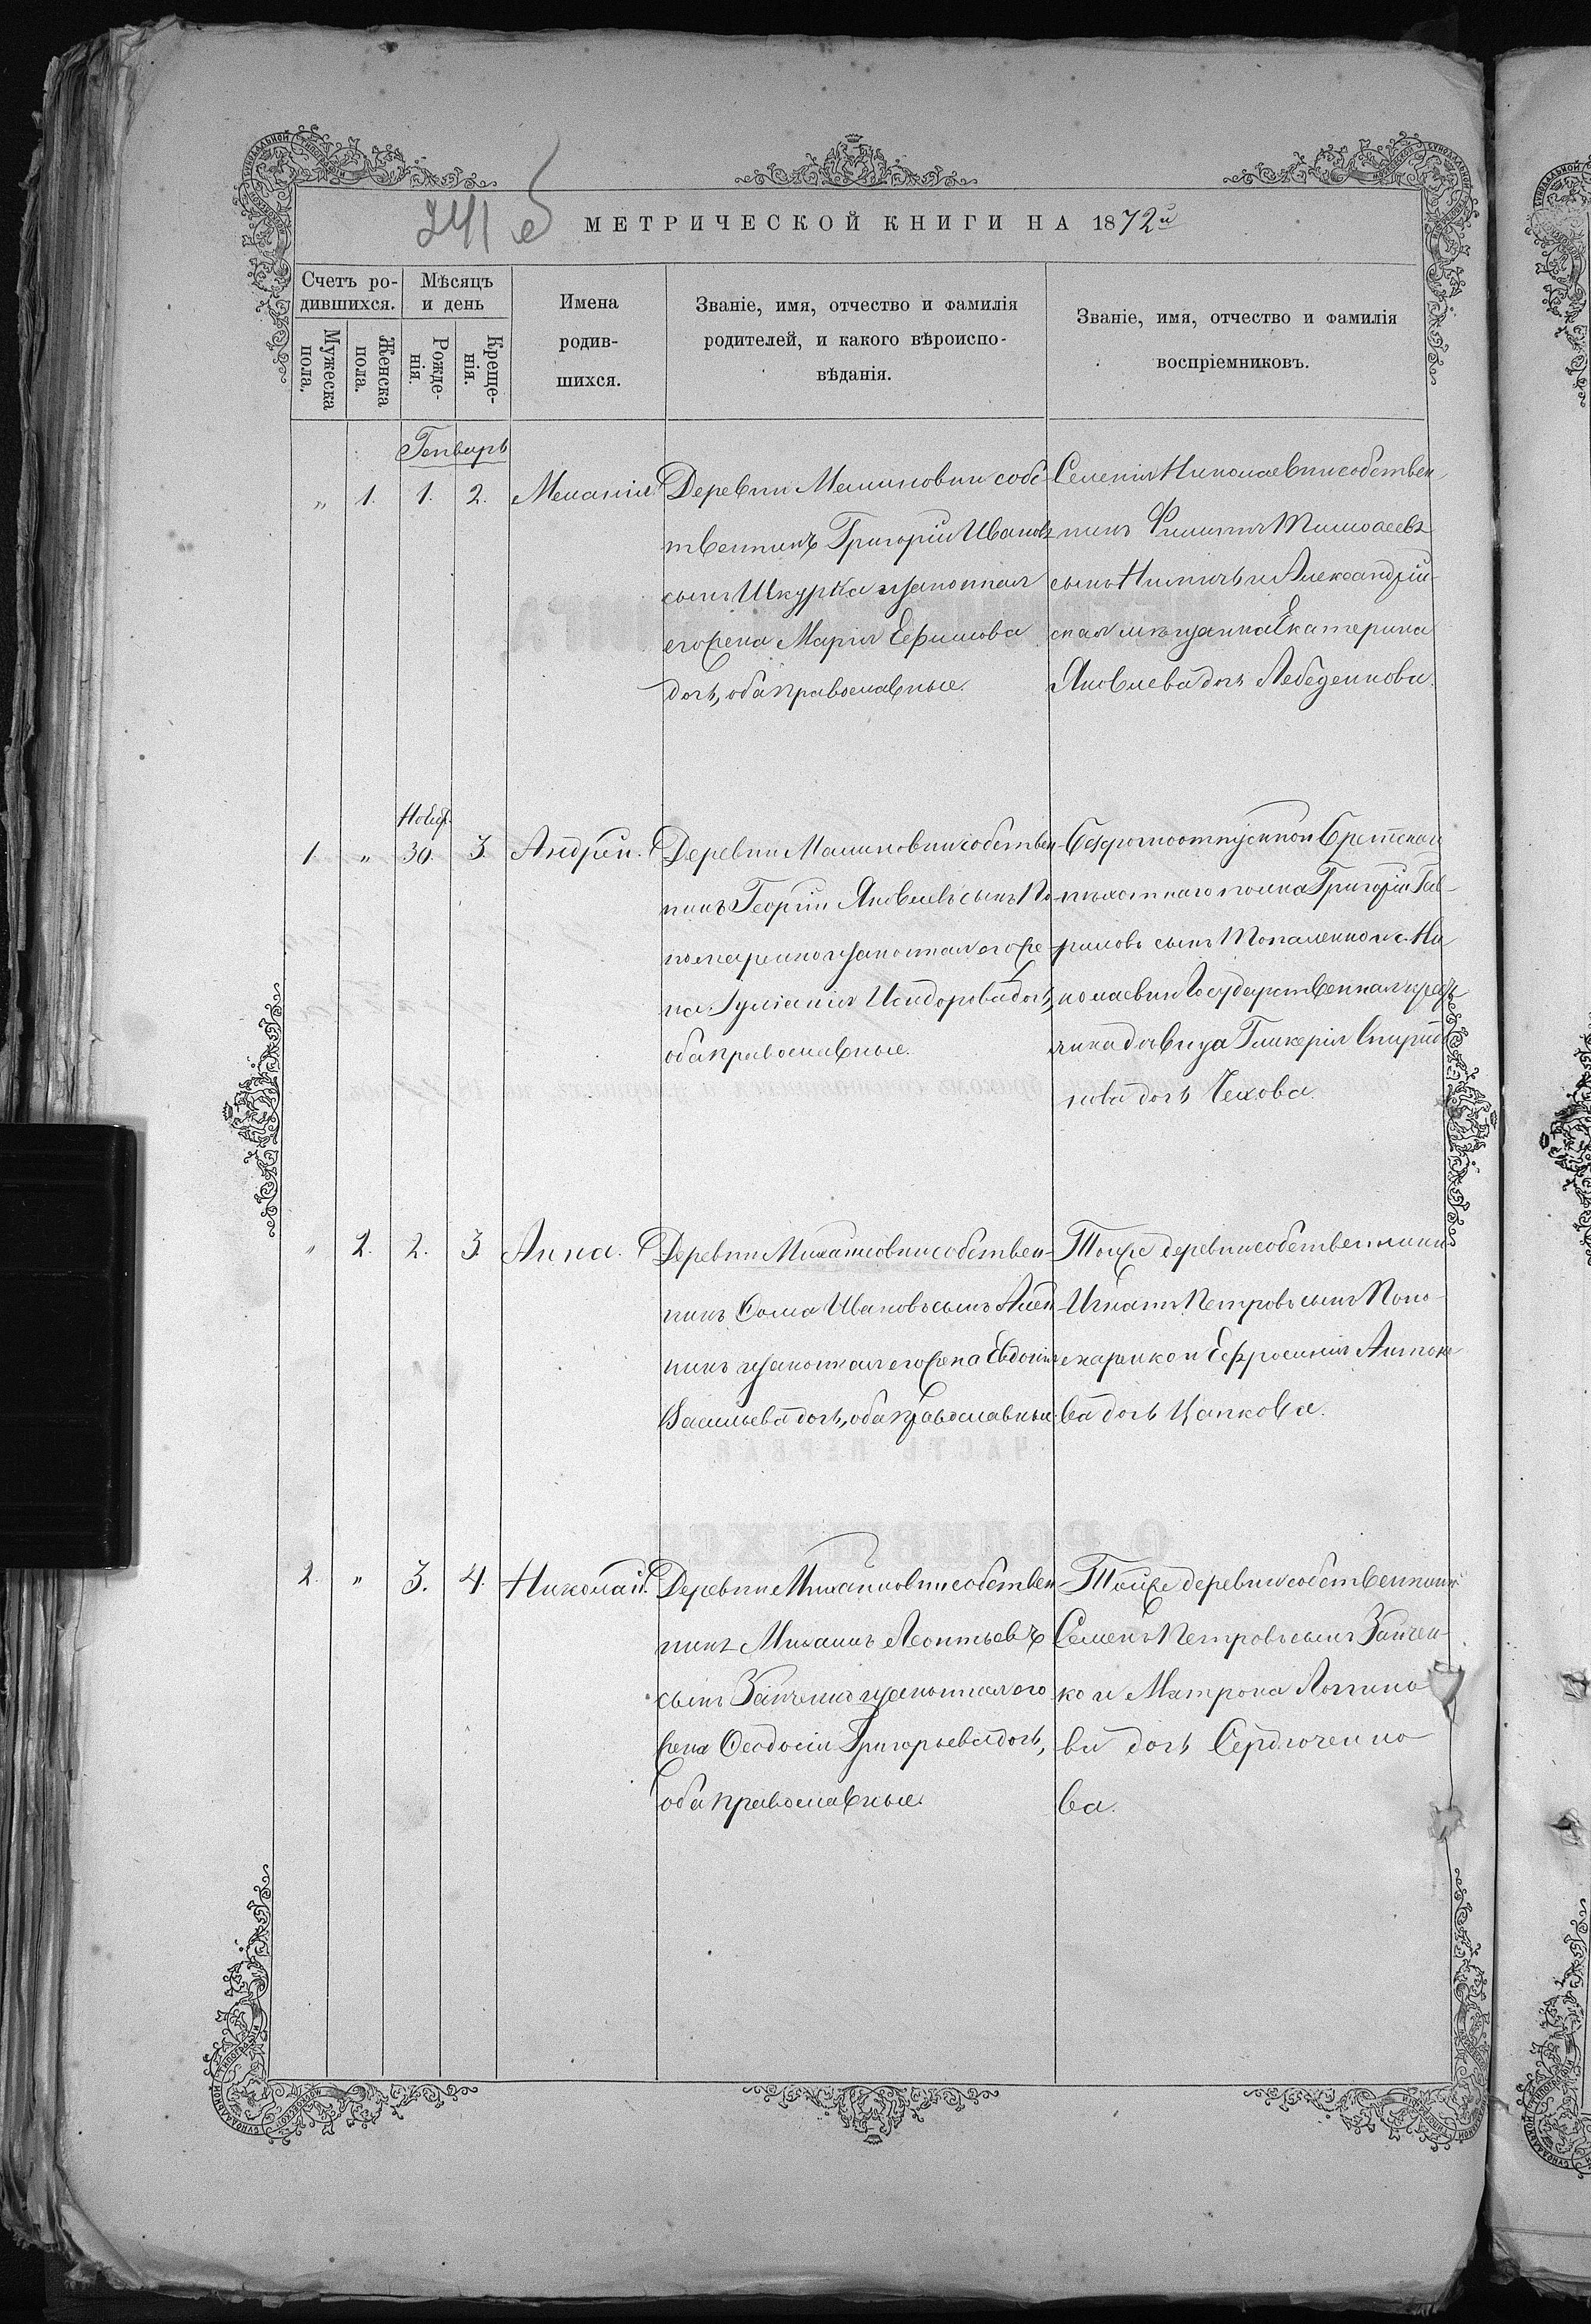 241 об
МЕТРИЧЕСКОЙ КНИГИ НА 1872й
Счетъ ро-
дившихся.
Мужеска
пола.
Женска
пола.
Мѣсяцъ
и день
Рожде-
нія.
Креще-
нія.
Имена
родив-
шихся.
Званіе, имя, отчество и фамилія
родителей, и какого вѣроиспо-
вѣданія.
Званіе, имя, отчество и фамилія
воспріемниковъ.
Генварь
" 1. 1. 2. Меланія
Деревни Малиновки собс-
твенникъ Григорій Ивановъ
сынъ Шкурка и законная
его жена Марія Ефимова
дочь, оба православные.
Селенія Николаевки собствен-
никъ Филиппъ Тимофеевъ
сынъ и Александрій-
ская мѣщанка Екатерина
Яковлева дочь Лебеденкова.
Ноябр.
1. " 30. 3. Андрей.
Деревни Малиновки собствен-
никъ Георгій Яковлевъ сынъ По-
номаренко и законная его же-
на Іуліанія Исидорова дочь,
оба православные.
Безсрочноотпускной Брестскаго
пѣхотнаго полка Григорій Гав-
риловъ сынъ и с. Ни-
колаевки Государственная крест-
янка дѣвица Гликерія Спиридо-
нова дочь Чехова.
" 2. 2. 3. Анна.
Деревни Михайловки собствен-
никъ Ѳома Ивановъ сынъ
никъ и законная его жена Евдокія
Васильева дочь, оба православные.
Тойже деревни собственникъ
Игнатъ Петровъ сынъ Поно-
маренко и Ефросинія Антоно-
ва дочь Цапкова.
2. " 3. 4. Николай.
Деревни Михайловки собствен-
никъ Михаилъ Леонтьевъ
сынъ Зайченко и законная его
жена Ѳеодосія Григорьева дочь,
оба православные.
Тойже деревни собственникъ
Семенъ Петровъ сынъ Зайчен-
ко и Матрона Логгино-
ва дочь Сердюченко-
ва.